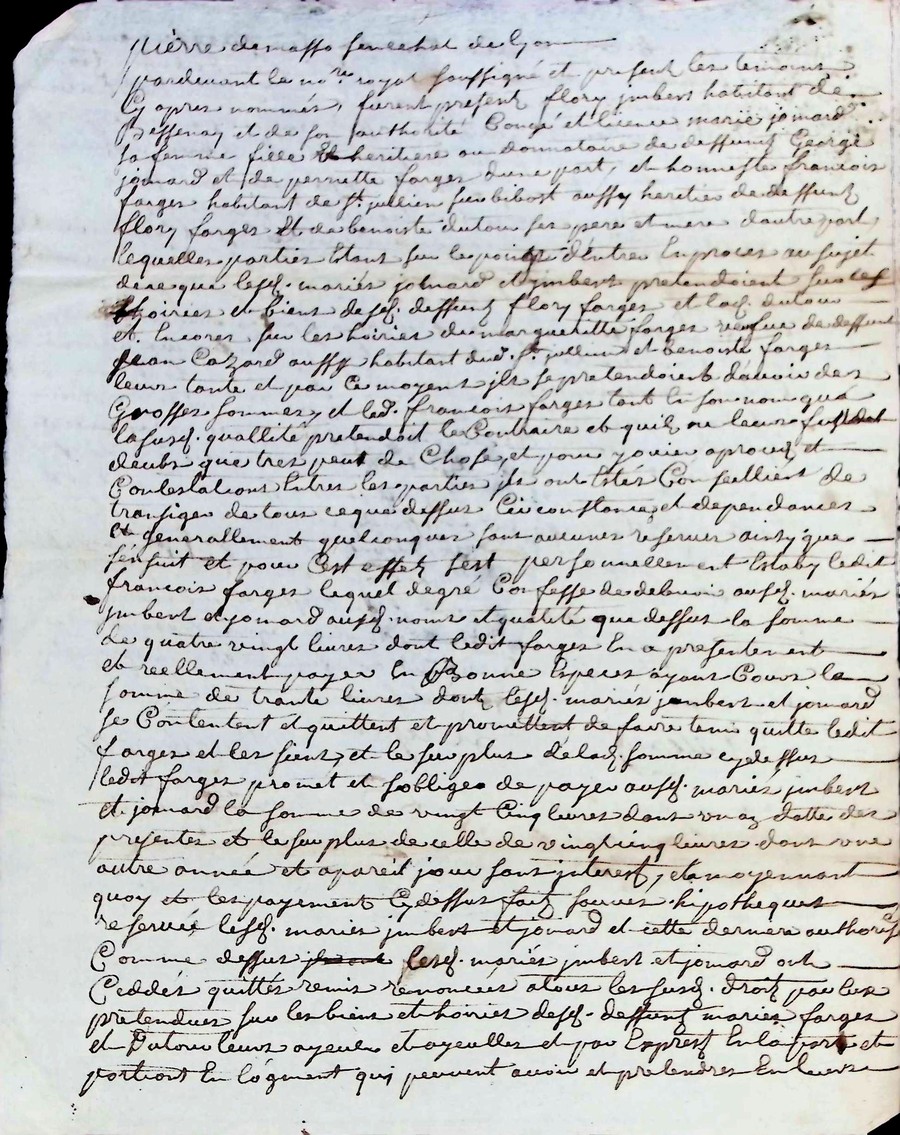 pierre demasso senechal de Lyon
pardevant le no.re royal soussigné et present les temoins
Cy apres nommés, furent present flory jmbert habitant de
Bessenay et de son authorité Congé et licence marie jomard
sa femme fille et heritiere ou donnataire de deffunt George
jomard et de pernette farges dune part, et honneste francois
farges habitant de St jullien sur bibost aussy heritier de deffunt
flory farges Et de benoiste dutour ses pere et mere dautre part
lequelles parties Estant sur le point d'entrer En proces au sujet
de ce que lesd. mariés jomard et jmbert pretendoient sur les
hoiries et biens desd. deffunt flory farges et lad. dutour
et Encores sur les hoiries de marguetitte farges vefue de deffunt
jean Cazard aussy habitant dud. St jullien et benoiste farges
leurs tante et par ce moyent jls se pretendoient dauoir des
Grosses sommes, et led. francois farges tant En son nom qua
la susd. quallité pretendoit le Contraire et quil ne leurs fut
deubt que tres peut de Chose, et pour y ouier a proces et
Contestations Entres les parties jls ont Estés Conseillient de
transiger de tous ce que dessus Circonstance et dependances
et generallement quelconques sans aucunes reserues ainsy que
sensuit et pour Cest effet s'est personnellement Estably ledit
francois farges lequel degré Confesse de debuoir ausd. mariés
jmbert et jomard ausd. noms et qualité que dessus la somme
de quatre vingt liures dont ledit farges En a presentement
et reellement payer En Bonne Especes ayant Cours la
somme de trante liures dont lesd. mariés jmbert et jomard
se Contentent et quittent et promettent de faire tenir quitte ledit
farges et les siens, et le surplus de lad. somme cy dessus
ledit farges promet et soblige de payer ausd. mariés jmbert
et jomard la somme de vingt Cinq liures dans vn an datte des
presentes et le surplus de celle de vingt cinq liures dans vne
autre année et a pareil jour sans jnterest, et a moyennant
quoy et les payement Cy dessus fait sauue hipotheques
reseruée lesd. mariés jmbert et jomard et cette derniere authorisé
Comme dessus lesd. mariés jmbert et jomard ont
Ceddés quittés remis renoncés a tous les susd. droit par Eux
pretendues sur les biens et hoiries desd. deffunt mariés farges
et Dutour leurs ayeul et ayeulles et par Expres En la part et
portions En logment qui peuvent auoir et pretendres En leurs